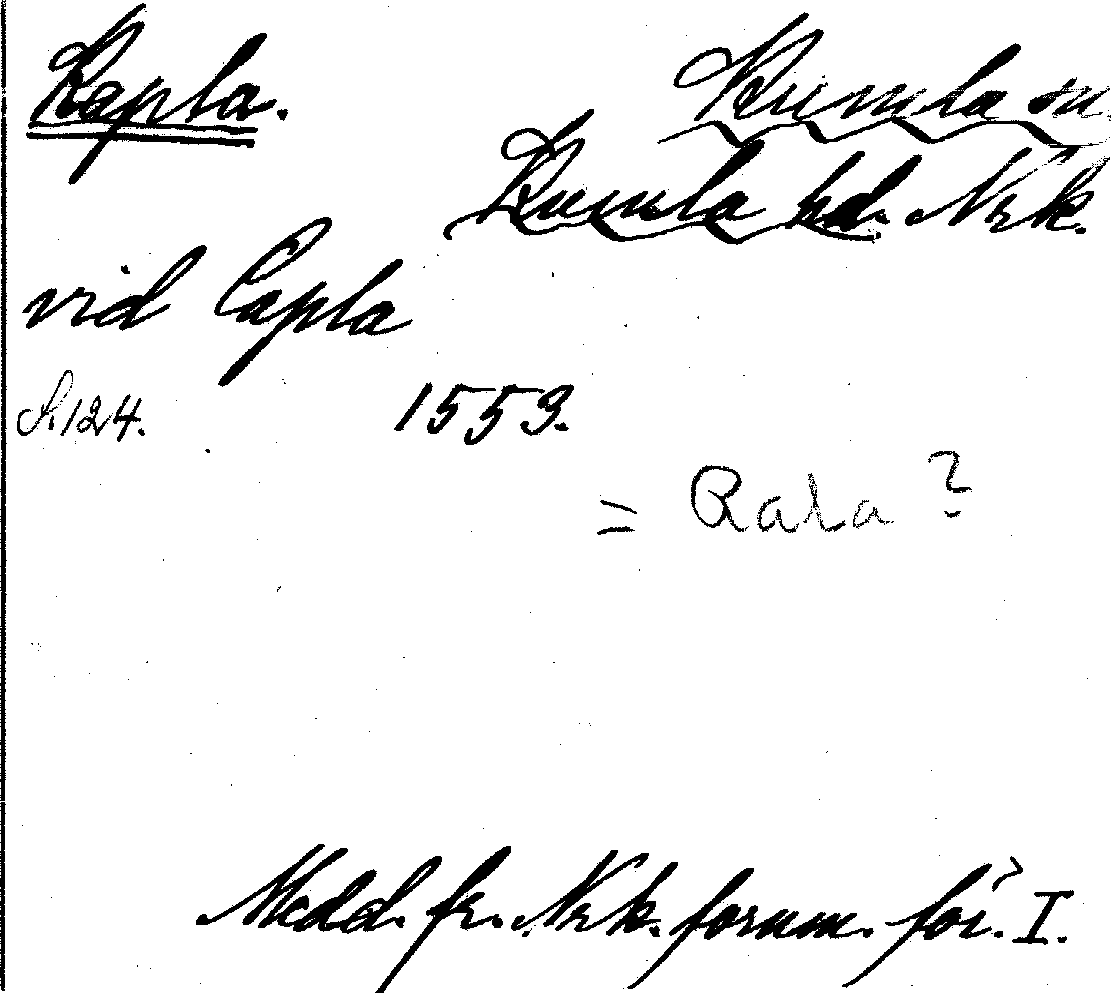 Kapla.
Kumla sn.
Kumla hd. Nrk.
vid Capla
S. 124.
1553.
= Rala ?
Medd. fr. Nrk. fornm. för. I.